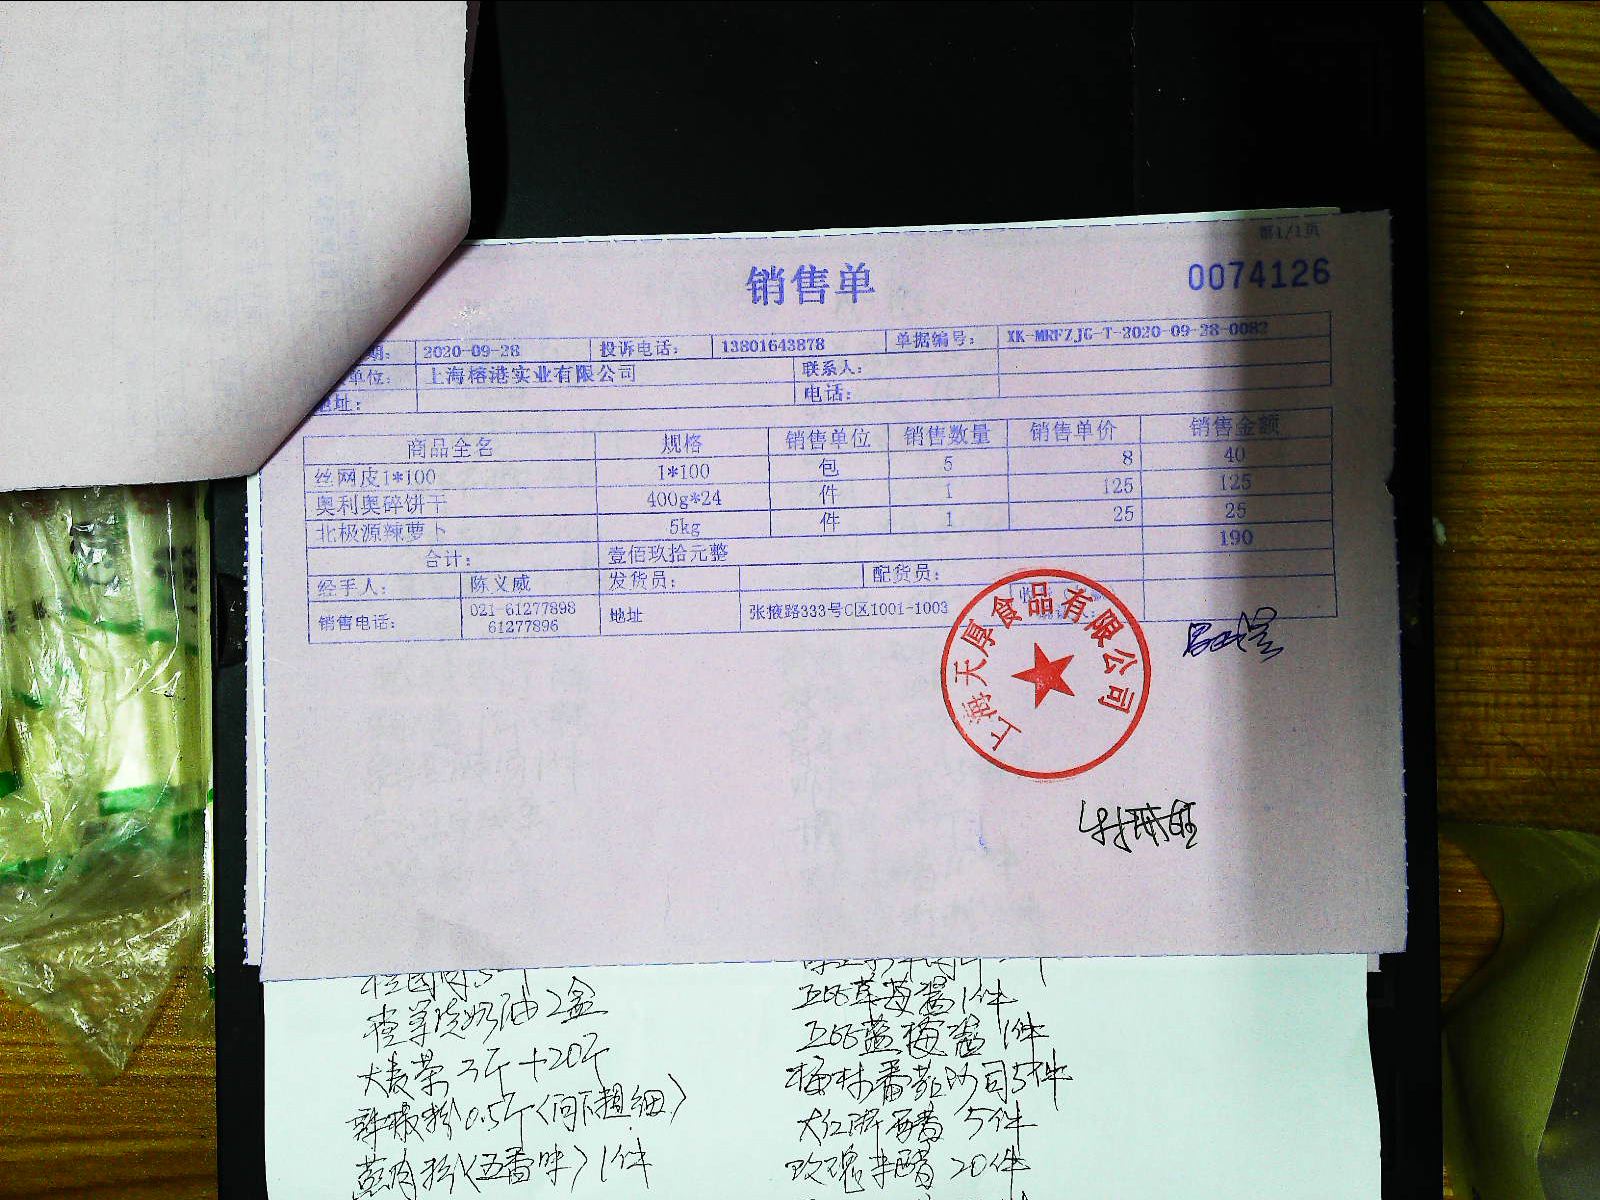 第1/1页
销售单
0074126
期: 2020-09-28 投诉电话: 13801643878 单据编号: XK-MRFZJG-T-2020-09-28-0082
单位: 上海榕港实业有限公司 联系人:
地址: 电话:
商品全名 规格 销售单位 销售数量 销售单价 销售金额
丝网皮1*100 1*100 包 5 8 40
奥利奥碎饼干 400g*24 件 1 125 125
北极源辣萝卜 5kg 件 1 25 25
合计: 壹佰玖拾元整 190
经手人: 陈义威 发货员: 配货员:
销售电话: 021-61277898 61277896 地址 张掖路333号C区1001-1003
上海天厚食品有限公司
奶油2盒
大麦茶 3斤+20斤
辣椒粉0.5斤(问下粗细)
(五香味)1件
草莓酱1件
蓝莓酱1件
梅林番茄沙司5件
大红浙醋 5件
玫瑰米醋 20件